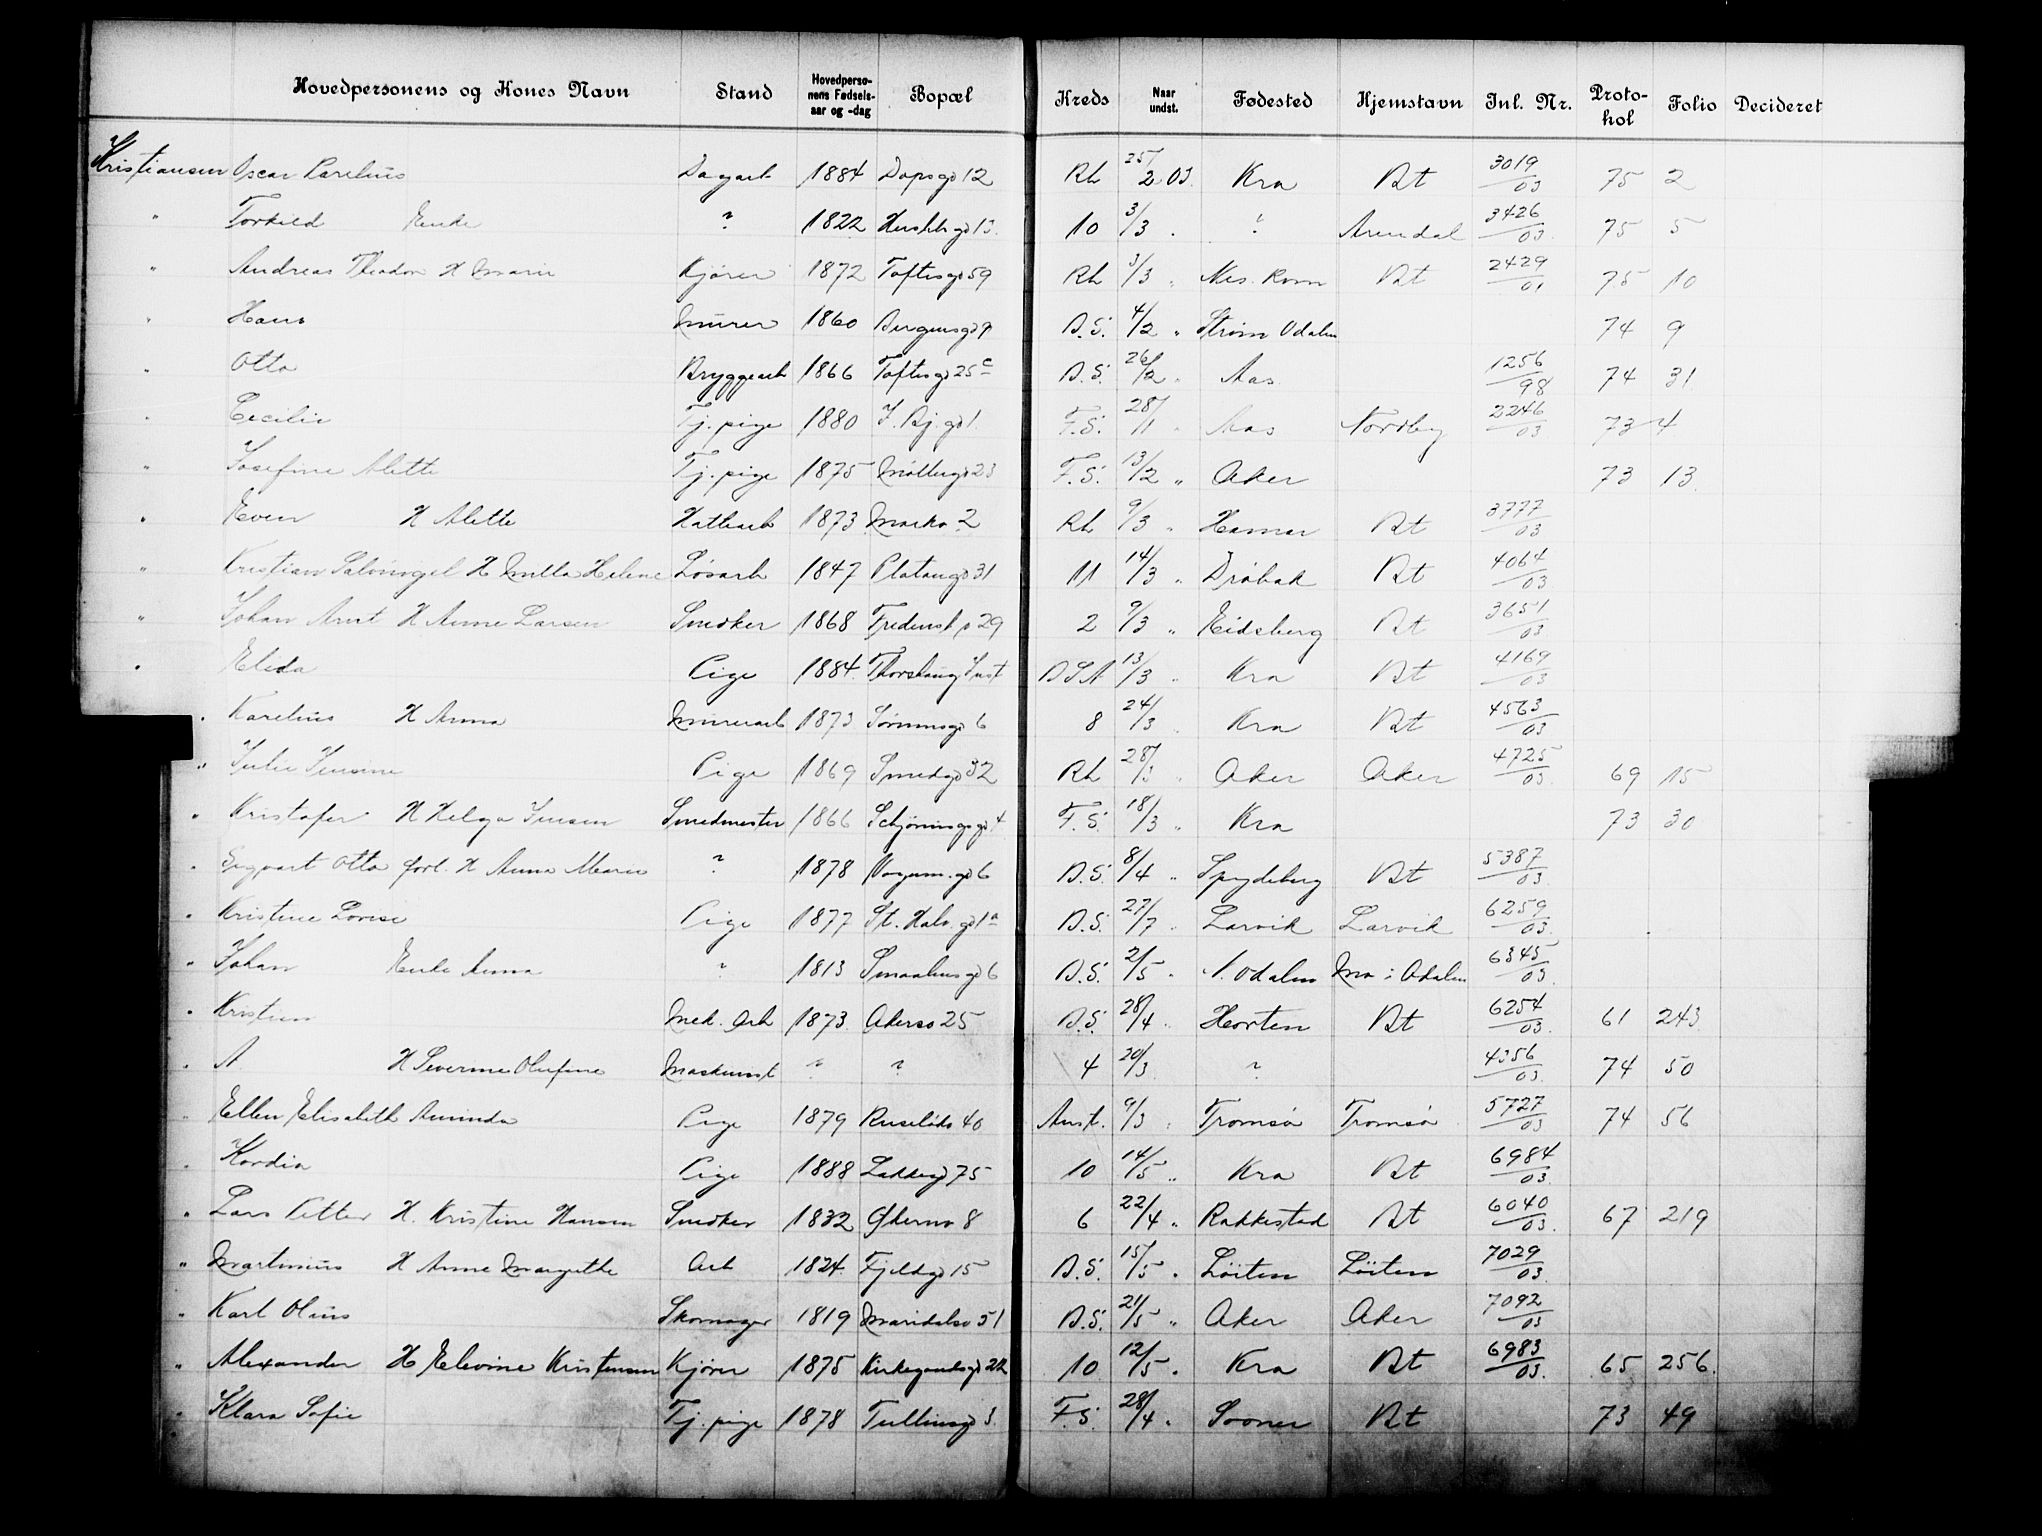 Hovedpersonens og Kones Navn Stand Hovedpersonens Fødselsaar og -dag Bopæl Kreds Naar undst. Fødested Hjemstavn Inl. Nr. Protokol Folio Decideret
Kristiansen Oscar Carelius Dagarb 1884 Dopsgd 12 Rh 25/2 03. Kra Bt 3019/03 75 2
" Torkild Enke ? 1822 Hushb gd 13. 10 3/3 . ? Arendal 3426/03. 75 5
" Andreas Theodor H Marie Kjører 1872 Toftesgd 59 Rh 3/3 " Nes. Rom Bt 2429/01 75 10
" Hans Murer 1860 Bergensgd 9 B.S. 4/2 " Strøm Odalen 74 9
" Otto Bryggearb 1866 Toftesgd 25 c B.S. 26/2 " Aas 1256/98 74 31
" Cecilie Tj. pige 1880 J. Bj. gd 1. F.S. 28/1 " Aas Nordby 2246/03 73 4
" Josefine Alette Tj. pige 1875 Møllergd 23 F.S. 13/2 " Aker 73 13.
" Even H Alette 1873 Markv 2 Rh 9/3 " Hamar Bt 3777/03
" Kristian H Milla Helene Løsarb 1847 Platougd 31 11 14/3 " Drøbak Bt 4064/03
" Johan Arnt H Anne Larsen Snedker 1868 29 2 9/3 " Eidsberg Bt 3651/03
" Elida Pige 1884. Thorshaug Inst 13/3 " Kra Bt 4169/03
" Karelius H Anna Murerarb 1873 6 8 24/3 " Kra Bt 4563/03
" Julie Jensine Pige 1869 Smedgd 32 Rh 28/3 " Aker Aker 4725/03. 69 15
" Kristofer H Helga Jensen Smedmester 1866 Schjøningsgd 4 F.S. 18/3 " Kra 73 30
" Sigvart Otto forl. H Anna Marie ? 1878 6 B.S. 8/4 " Spydeberg Bt 5387/03.
" Kristine Lovise Pige 1877 St. Halv. gd 1 a B.S. 27/7 " Larvik Larvik 6259/03.
" Johan Enke Anna " 1813 Smaalensgd 6 B.S. 2/5 " N. Odalen Mo i Odalen 6345/03.
" Kristian Mek. Arb 1873. Akersv 25 B.S. 28/4 " Horten Bt 6254/03. 61 243.
" A. H Severine Olufine Maskinist ? ? 4 20/3 ? 4356/03. 74 50
" Ellen Elisabeth Aminda Pige 1879 Ruseløkv 40 Anst. 9/3 " Tromsø Tromsø 5727/03 74 56
" Kordia Pige 1888 Lakkegd 75 10 14/5 " Kra Bt 6984/03.
" Lars Petter H. Kristine Hansen Snedker 1832 8 6 22/4 " Rakkestad Bt 6040/03. 67 219
" Martinius H Anne Margrethe Arb 1824. Fjeldgd 15 B.S. 15/5 " Løiten Løiten 7029/03.
" Karl Olaus Skomager 1819 Maridalsv 51 B.S. 21/5 " Aker Aker 7092/03
" Alexander H Elevine Kristensen Kjører 1875 Kirkegaardsgd 22 10 12/5 " Kra Bt 6983/03. 65 256.
" Klara Sofie Tj. pige 1878 Tullinsgd 3. F.S. 28/4 " Sooner Bt 73 49